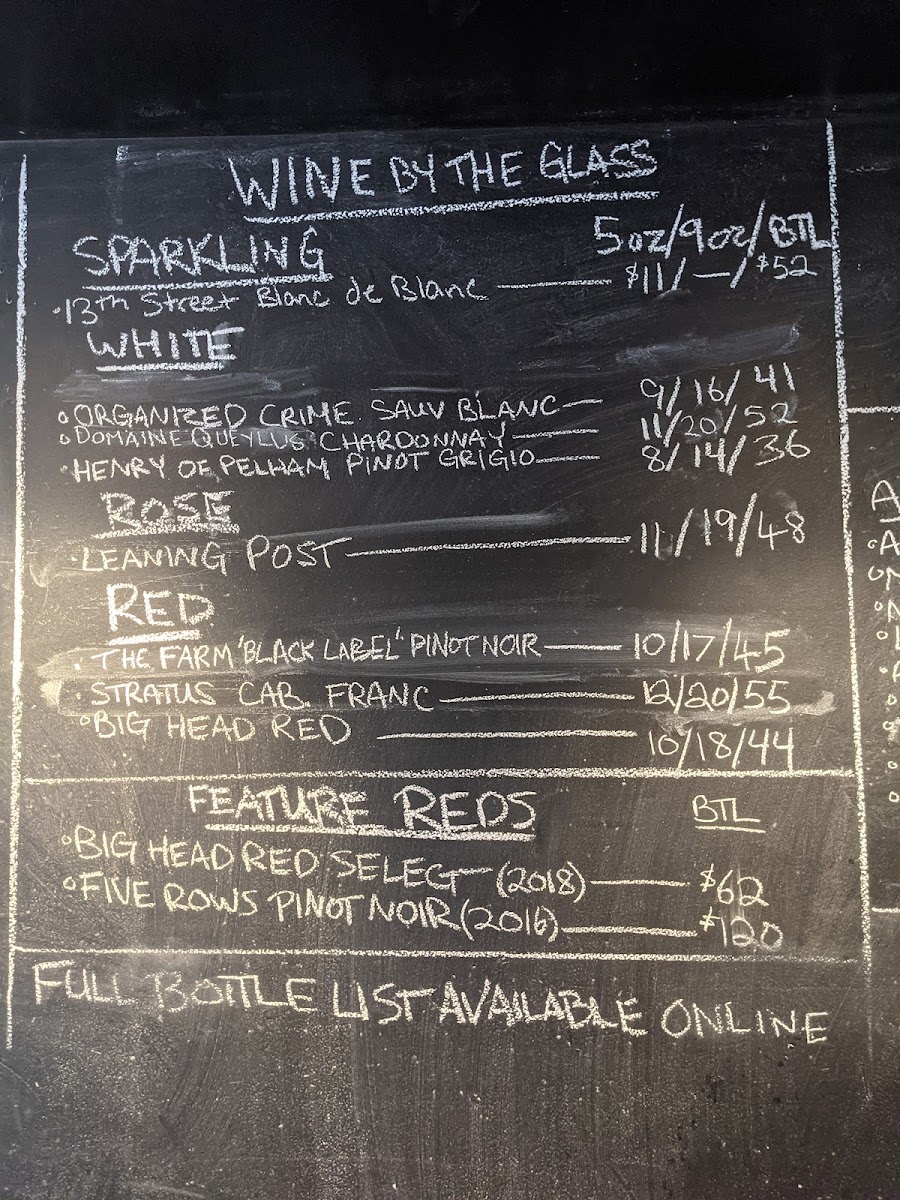 WINE BY THE GLASS
SPARKLING 5oz/9oz/BTL
·13th Street Blanc de Blanc $11/—/$52
WHITE
ORGANIZED CRIME SAUV BLANC 9/16/41
DOMAINE QUEYLUS CHARDONNAY 11/20/52
HENRY OF PELHAM PINOT GRIGIO 8/14/36
ROSE
LEANING POST 11/19/48
RED
THE FARM 'BLACK LABEL' PINOT NOIR 10/17/45
STRATUS CAB. FRANC 12/20/55
BIG HEAD RED 10/18/44
FEATURE REDS BTL
BIG HEAD RED SELECT (2018) $62
FIVE ROWS PINOT NOIR (2016) $120
FULL BOTTLE LIST AVAILABLE ONLINE